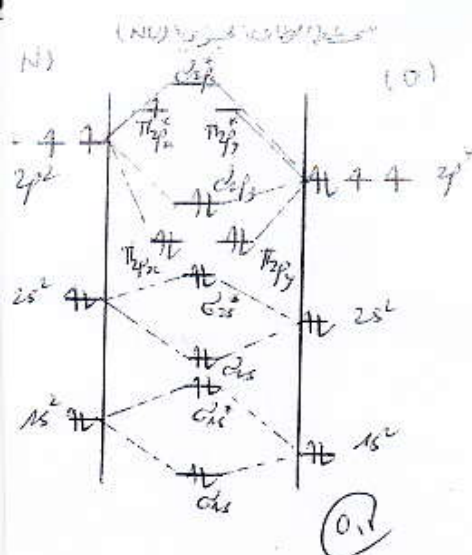 (NO)
N)
(O)
σ*2pz
π*2px π*2py
2p²
2p⁴
σ2pz
π2px π2py
2s²
σ*2s
2s²
σ2s
1s²
σ*1s
1s²
σ1s